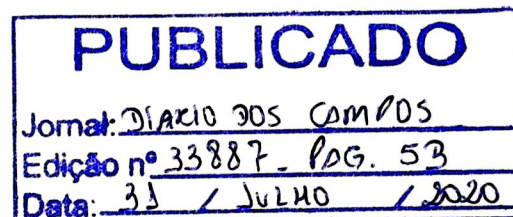 PUBLICADO
Jornal: DIARIO DOS CAMPOS
Edição nº 33887 - PAG. 5B
Data: 31 / JULHO / 2020